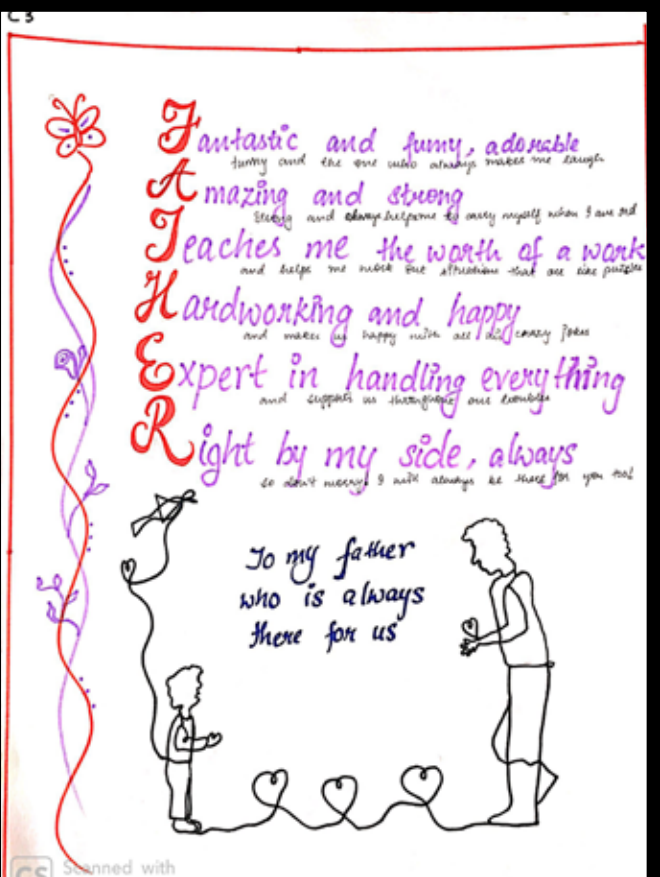 C3
Fantastic and funny, adorable
funny and the one who always makes me laugh
Amazing and strong
Strong and always helps me to carry myself when I am sad
Teaches me the worth of a work
and helps me work out situations that are like puzzles
Hardworking and happy
and makes us happy with all his crazy jokes
Expert in handling everything
and supports us throughout our troubles
Right by my side, always
so don't worry I will always be there for you too!
To my father
who is always
there for us
CS Scanned with